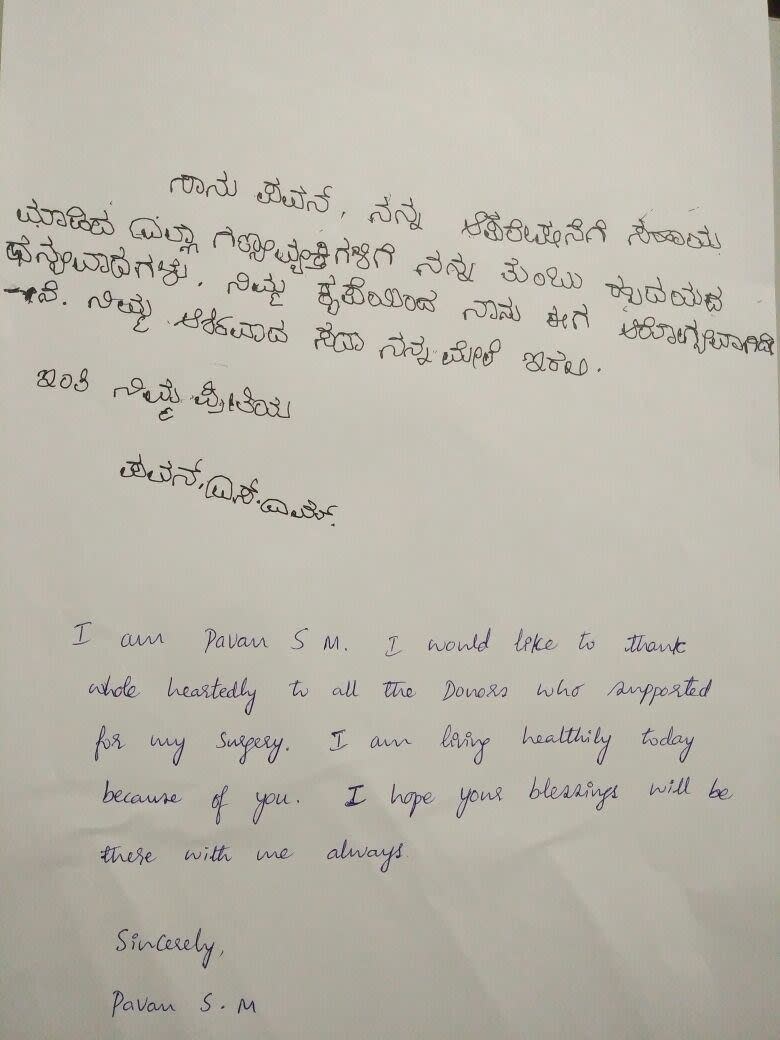 ನಾನು ಪವನ್, ನನ್ನ ಆಪರೇಷನ್‌ಗೆ ಸಹಾಯ
ಮಾಡಿದ ಎಲ್ಲಾ ಗಣ್ಯವ್ಯಕ್ತಿಗಳಿಗೆ ನನ್ನ ತುಂಬು ಹೃದಯದ
ಧನ್ಯವಾದಗಳು. ನಿಮ್ಮ ಕೃಪೆಯಿಂದ ನಾನು ಈಗ ಆರೋಗ್ಯವಾಗಿದ್ದೇ
ನೆ. ನಿಮ್ಮ ಸದಾ ನನ್ನ ಮೇಲೆ ಇರಲಿ.
ಇಂತಿ ನಿಮ್ಮ ಪ್ರೀತಿಯ
ಪವನ್.ಎಸ್.ಎಮ್.
I am Pavan S M. I would like to thank
whole heartedly to all the Donors who supported
for my surgery. I am living healthily today
because of you. I hope your blessings will be
there with me always.
Sincerely,
Pavan S. M